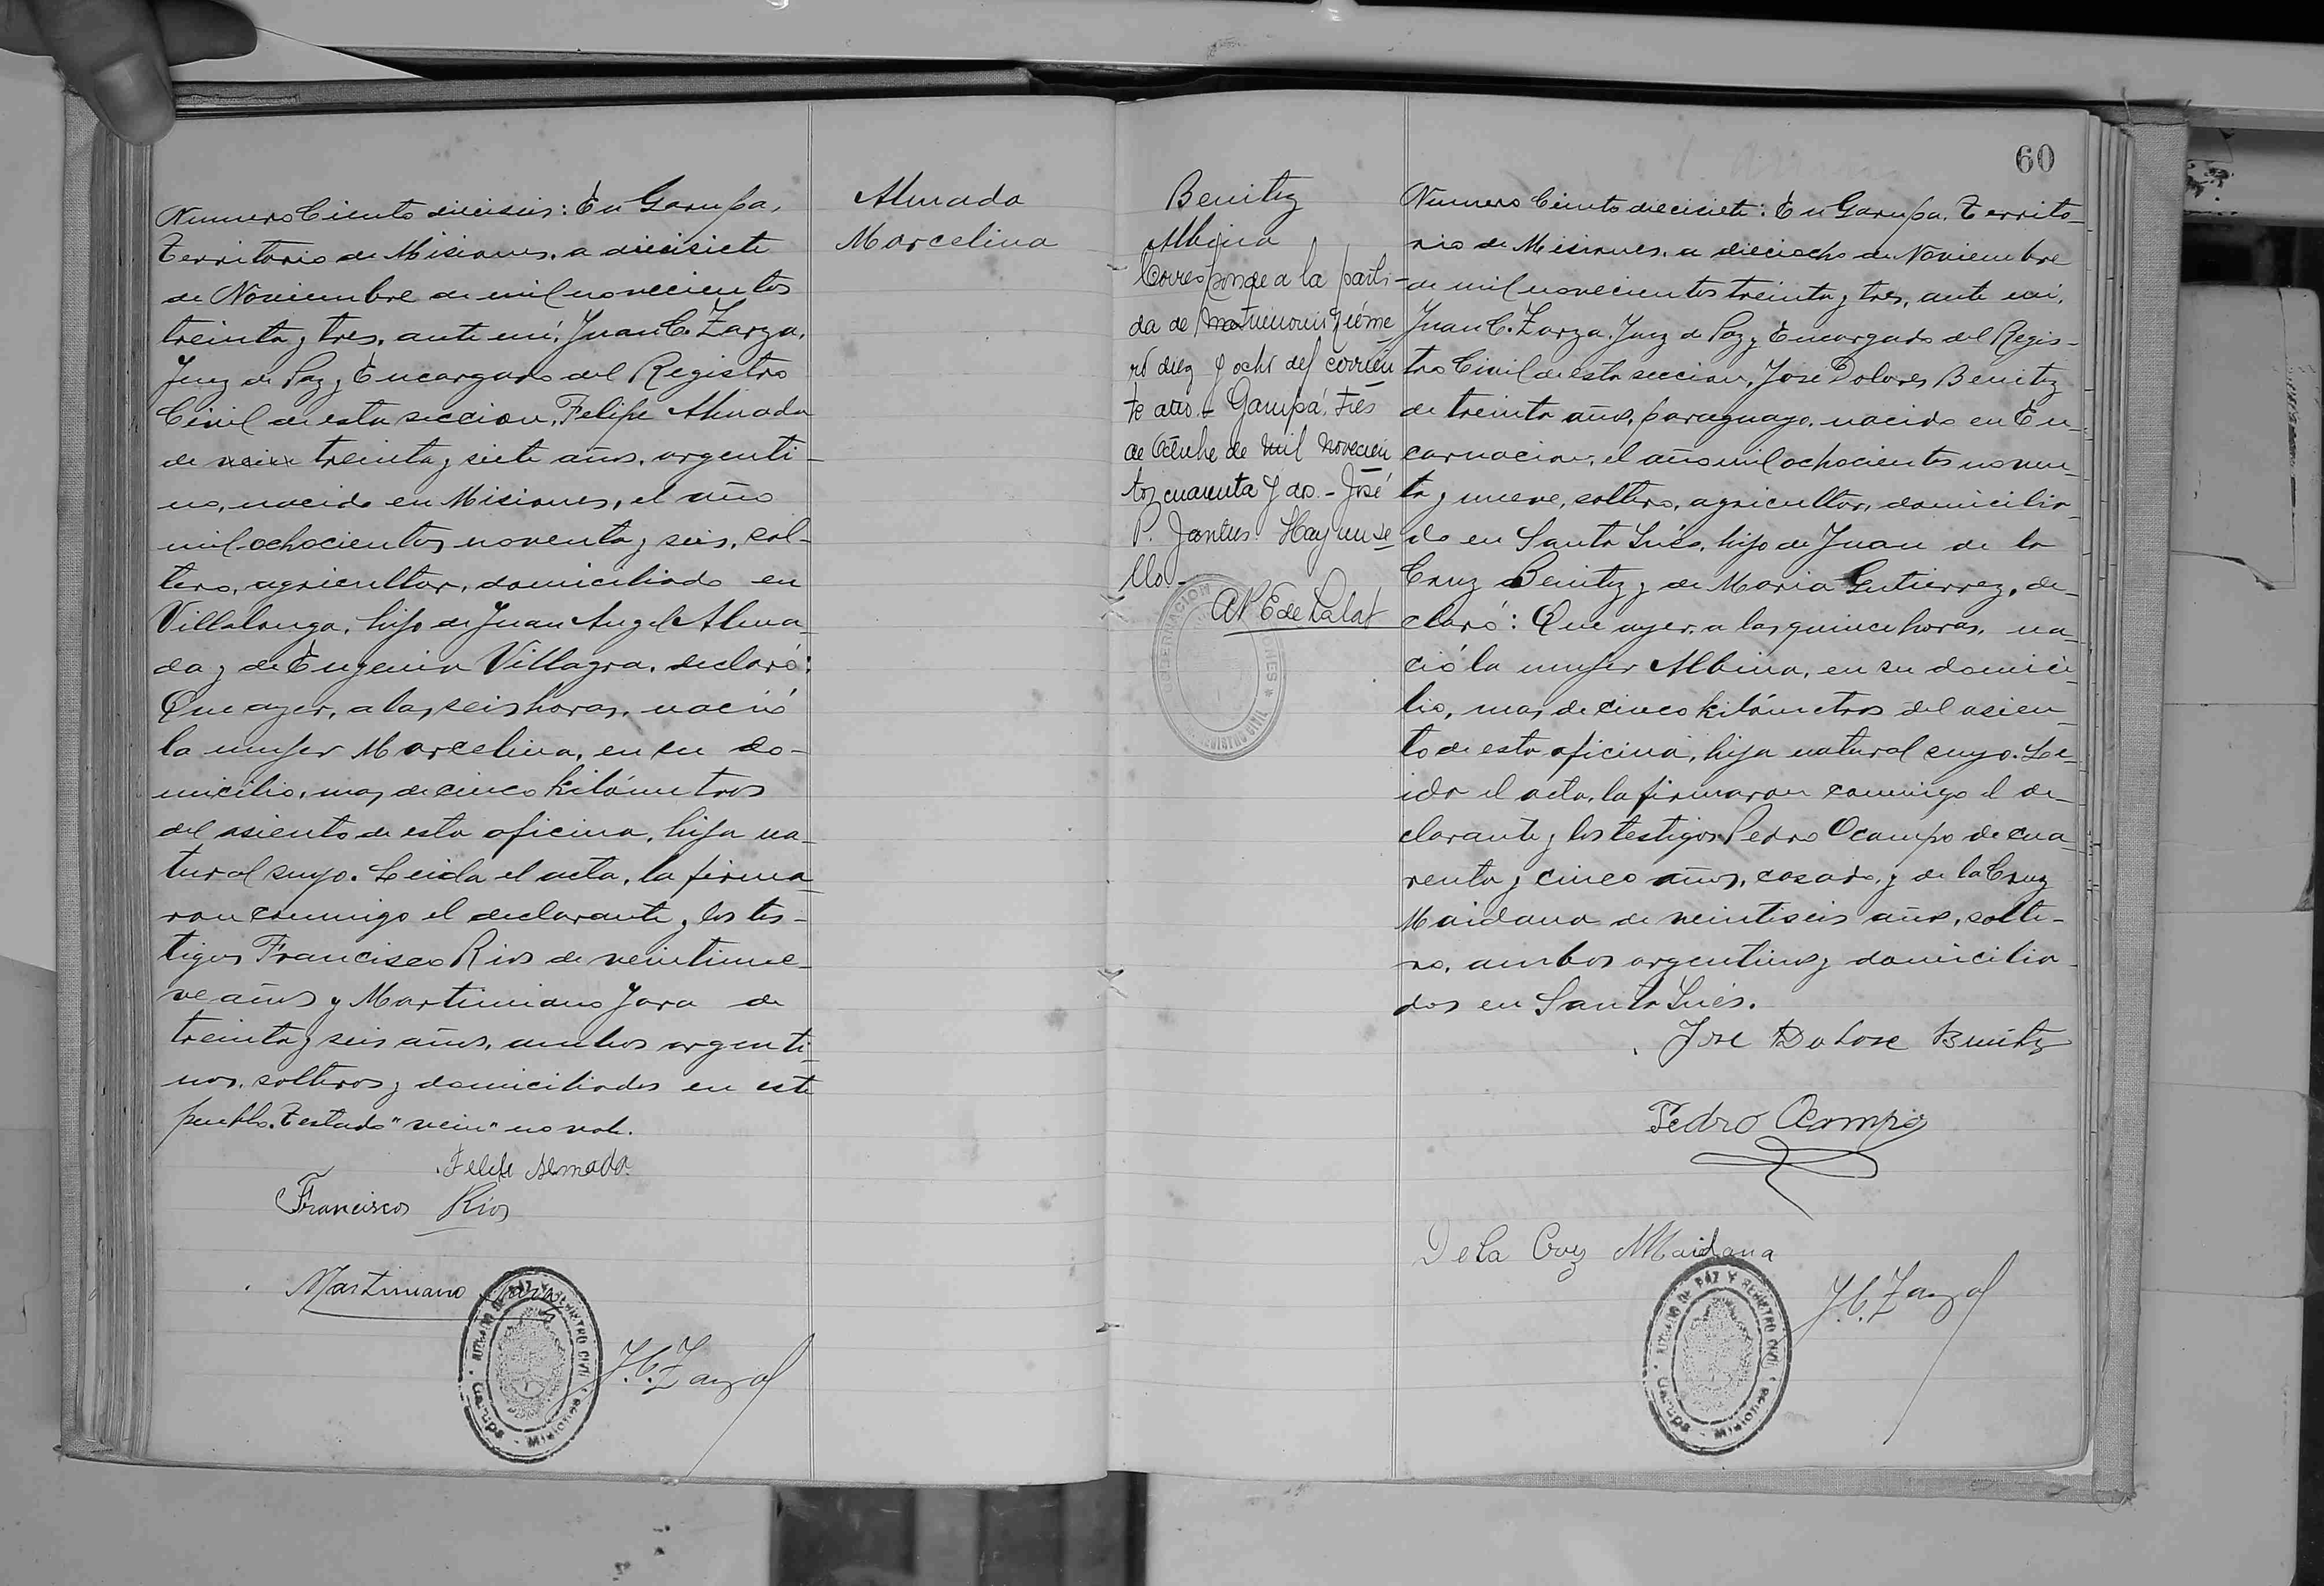 Numero Ciento dieciseis: En Garupa,
Territorio de Misiones, a diecisiete
de Noviembre de mil novecientos
treinta y tres, ante mí, Juan C. Zarza,
Juez de Paz y Encargado del Registro
Civil de esta seccion, Felipe Almada
de vein treinta y siete años, argenti-
no, nacido en Misiones, el año
mil ochocientos noventa y seis, sol-
tero, agricultor, domiciliado en
Villalonga, hijo de Juan Angel Alma-
da y de Eugenia Villagra, declaró:
Que ayer, a las seis horas, nació
la mujer Marcelina, en su do-
micilio, mas de cinco kilómetros
del asiento de esta oficina, hija na-
tural suya. Leida el acta, la firma-
ron conmigo el declarante y los tes-
tigos Francisco Rios de veintinue-
ve años y Martiniano Jara de
treinta y seis años, ambos argenti-
nos, solteros y domiciliados en este
pueblo. Testado "vein" no vale.
Felipe Almada
Francisco Rios
Martiniano Jara
J. C. Zarza
JUZGADO DE PAZ Y REGISTRO CIVIL
Garupá - MISIONES
Almada
Marcelina
Benitez
Albina
Corresponde a la parti-
da de matrimonio núme
ro diez y ocho del corrien
te año.- Garupá, tres
de Octubre de mil novecien
tos cuarenta y dos.- José
P. Hay un se
llo-
GOBERNACION MISIONES * REGISTRO CIVIL
60
Numero Ciento diecisiete: En Garupa, Territo-
rio de Misiones, a dieciocho de Noviembre
de mil novecientos treinta y tres, ante mí,
Juan C. Zarza, Juez de Paz y Encargado del Regis-
tro Civil de esta seccion, Jose Dolores Benitez
de treinta años, paraguayo, nacido en En-
carnacion, el año mil ochocientos noven-
ta y nueve, soltero, agricultor, domicilia-
do en Santa Inés, hijo de Juan de la
Cruz Benitez y de Maria Gutierrez, de-
claró: Que ayer, a las quince horas, na-
ció la mujer Albina, en su domici-
lio, mas de cinco kilómetros del asien-
to de esta oficina, hija natural suya. Le-
ida el acta, la firmaron conmigo el de-
clarante y los testigos Pedro Ocampo de cua-
renta y cinco años, casado, y de la Cruz
Maidana de veintiseis años, solte-
ro, ambos argentinos y domicilia-
dos en Santa Inés.
Jose Dolore Benitez
Pedro Ocampo
De la Cruz Maidana
J. C. Zarza
JUZGADO DE PAZ Y REGISTRO CIVIL
Garupá - MISIONES